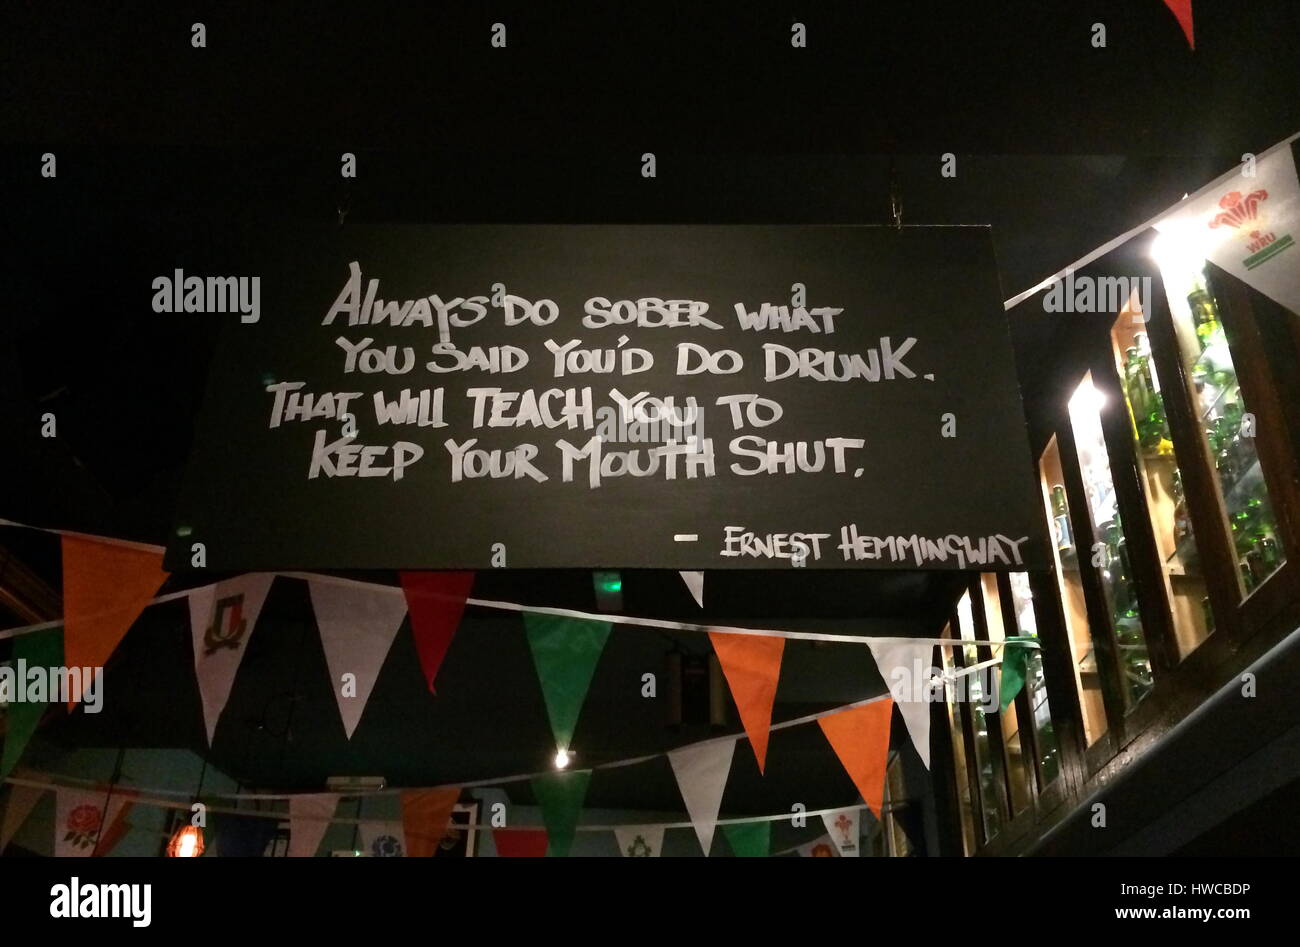 ALWAYS DO SOBER WHAT
YOU SAID YOU'D DO DRUNK.
THAT WILL TEACH YOU TO
KEEP YOUR MOUTH SHUT.
- ERNEST HEMMINGWAY
WRU
a a a a
a a a a
alamy alamy alamy
a a a
a alamy a
a a a a
alamy a a a
a a a a
alamy
Image ID: HWCBDP
www.alamy.com